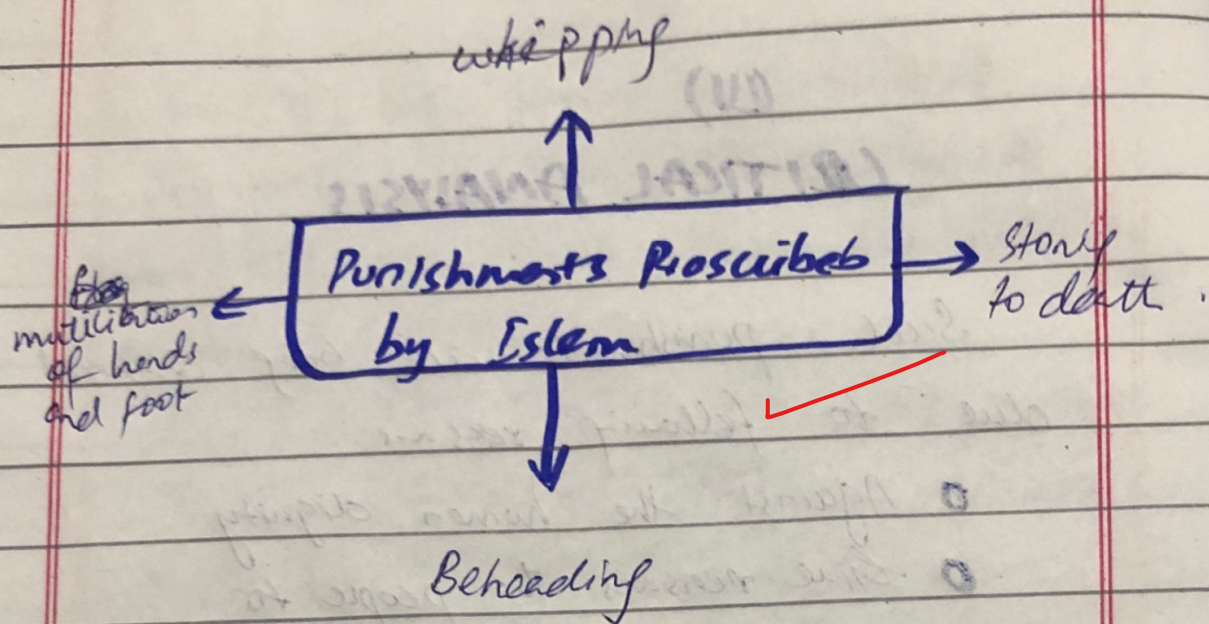 whipping
Punishments Proscribed
by Islam
stoning
to death.
mutilation
of hands
and foot
Beheading